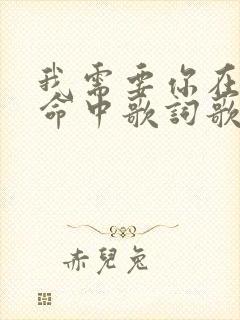 我需要你在
命中歌詞歌
赤兒兔